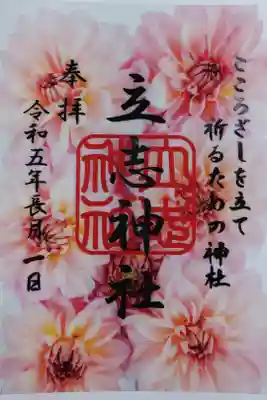 こころざしを立て
祈るための神社
立志神社
奉拝
令和五年長月一日